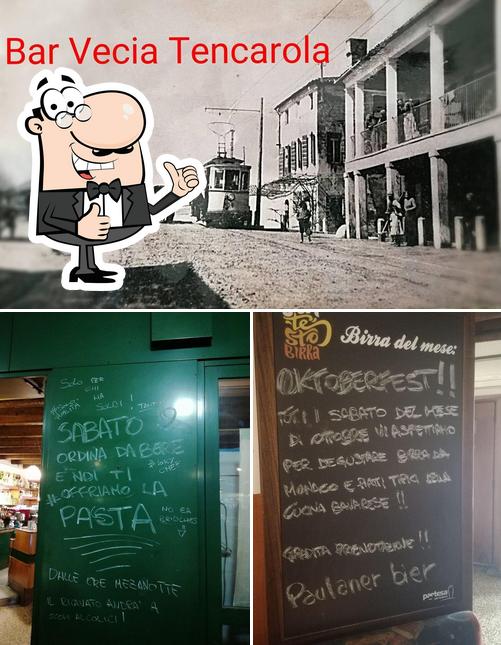 Bar Vecia Tencarola
SOLO PER
CHI
HA
SOLDI!
SABATO
ORDINA DA BERE
E NOI TI
#OFFRIAMO LA
PASTA
NO EA
BRIOCHES
DALLE ORE MEZANOTTE
IL RICAVATO ANDRA' A
ALCOLICI!
BIRRA
Birra del mese:
OKTOBERFEST!!
TUTTI I SABATO DEL MESE
DI OTTOBRE VI ASPETTIAMO
PER DEGUSTARE BIRRA DA
MONACO E PIATTI TIPICI DELLA
CUCINA BAVARESE!!
GRADITA PRENOTAZIONE!!
Paulaner bier
partesa